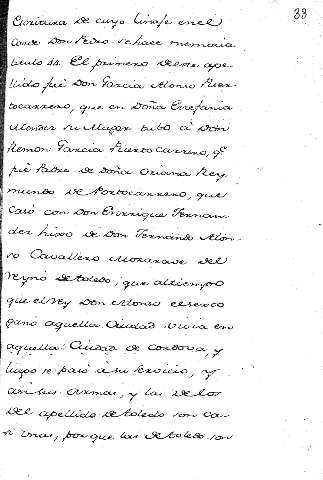 33
Oriana de cuyo linaje en el
Conde Don Pedro se hace memoria
titulo 44. El primero de este ape-
llido fué Don Garcia Alonso Puer-
tocarrero, que en Doña Estefania
Mendez su Muger tubo á Don
Remon Garcia Puertocarrero, q.e
fué Padre de Doña Oriana Rey
mundo de Portocarrero, que
casó con Don Enrrique Fernan-
dez hijo de Don Fernando Alon-
so Cavallero Mozarave del
reyno de toledo, que al tiempo
que el rey Don Alonso el sexto
ganó aquella Ciudad vivia en
aquella Ciudad de Cordova, y
luego se pasó á su servicio, y
asi sus Armas, y las de los
del apellido de toledo son ca-
si unas, porque las de toledo son